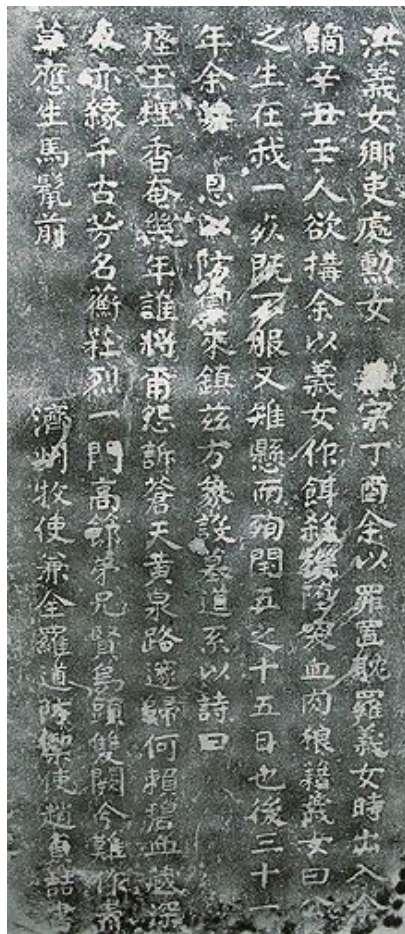 洪義女鄉吏處勳女 宗丁酉余以罪置耽羅義女時出入余
謫辛丑壬人欲搆余以義女作餌殺機陰突血肉狼藉義女曰公
之生在我一死旣不服又雉懸而殉閏五之十五日也後三十一
年余蒙 恩以防禦來鎮茲方象設墓道系以詩曰
瘞玉埋香奄幾年誰將爾怨訴蒼天黃泉路邃歸何賴碧血藏深
死亦緣千古芳名蘅杜烈一門高節弟兄賢烏頭雙闕今難作青
草應生馬鬣前 濟州牧使兼全羅道防禦使趙貞喆書